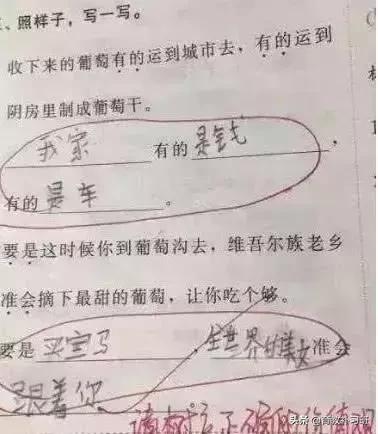 、照样子，写一写。
收下来的葡萄有的运到城市去，有的运到
阴房里制成葡萄干。
我家有的是钱，
有的是车。
要是这时候你到葡萄沟去，维吾尔族老乡
准会摘下最甜的葡萄，让你吃个够。
要是买宝马，全世界的美女准会
跟着你
请树立正确的价值观